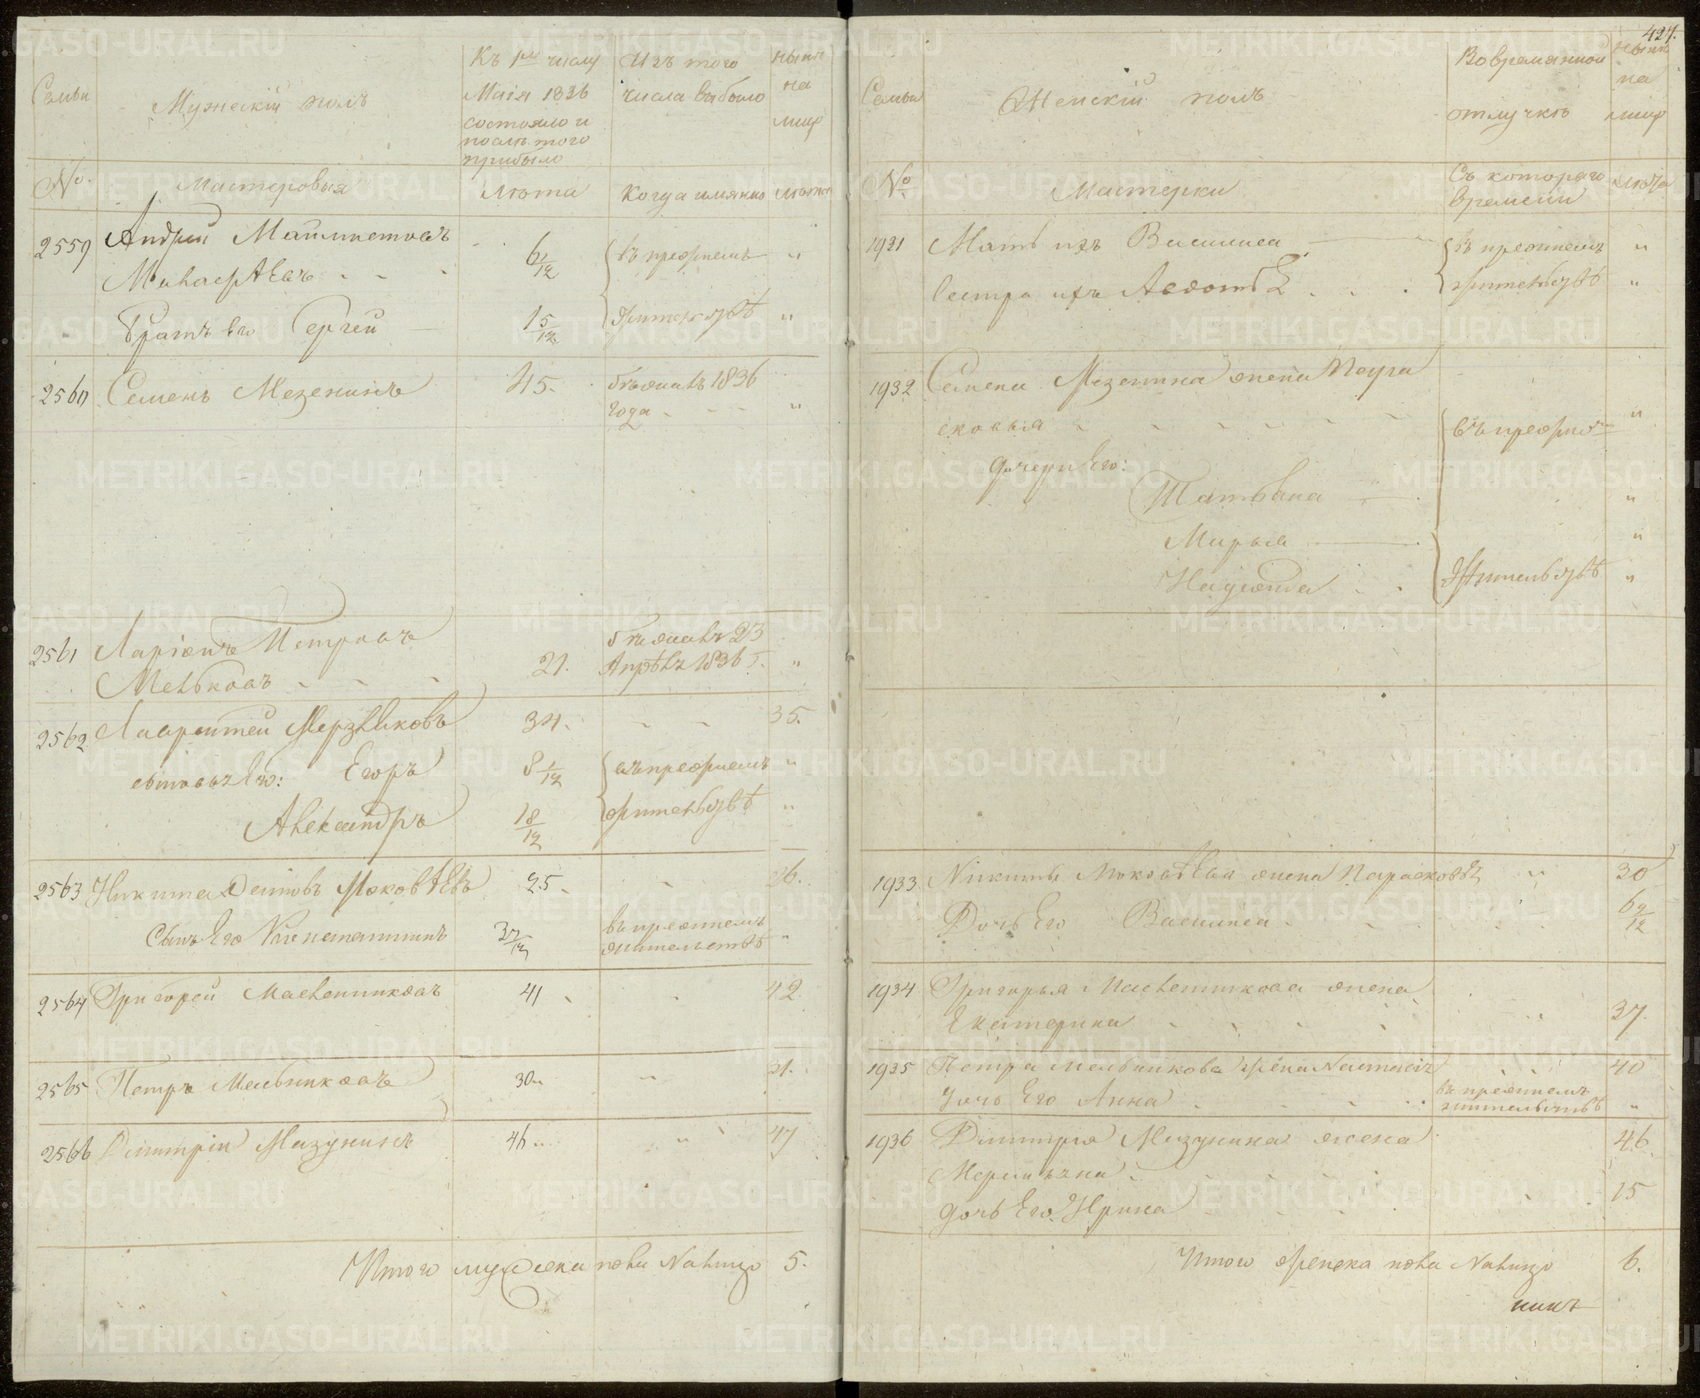 Семьи
Мужескій полъ
Къ 1му числу
Маія 1836
состояло и
послѣ того
прибыло
Изъ того
числа выбыло
нынѣ
на
лицо
№.
Мастеровыя
Лѣта
Когда имянно
лѣта
2559 Андрей
6/12 въ прежнемъ "
Братъ Его Сергей 15/12 жительствѣ "
2560 Семенъ Мезенинъ 45. бѣжалъ 1836
года "
2561 Ларіонъ Петровъ бѣжалъ 23
Мельковъ 21. Апрѣля 1836 г. "
2562 Лаврентей Мерзляковъ 34. 35.
сыновья Его: Егоръ 8 1/12 въ прежнемъ "
Александръ 18/12 жительствѣ "
2563 Никита Деитовъ 25. 26.
Сынъ Его Константинъ 37/12 въ прежнемъ
жительствѣ "
2564 Григорей Масленниковъ 41 42.
2565 Петръ Мельниковъ 30 31.
2566 Дмитрій Мизунинъ 46 " 47
Итого мужеска пола налицо 5.
427.
Семьи
Женскій полъ
Во временной
отлучкѣ
нынѣ
на
лицо
№
Мастерки
Съ котораго
времени
лѣта
1931 Мать ихъ Василиса въ прежнемъ "
Сестра ихъ Авдотья жительствѣ "
1932 Семена Мезенина жена Параска
ковья въ прежнемъ "
дочери Его:
Татьяна "
Марья "
Надежда жительствѣ "
1933 Никиты жена Парасковья " 30
Дочь Его Василиса 69/12
1934 Григорья Масленникова жена
Екатерина 37.
1935 Петра Мельникова жена Настасія 40
Дочь Его Анна въ прежнемъ
жительствѣ "
1936 Дмитрія Мизунина жена 46.
дочь Его Ирина 15
Итого женска пола налицо 6.
METRIKI.GASO-URAL.RU